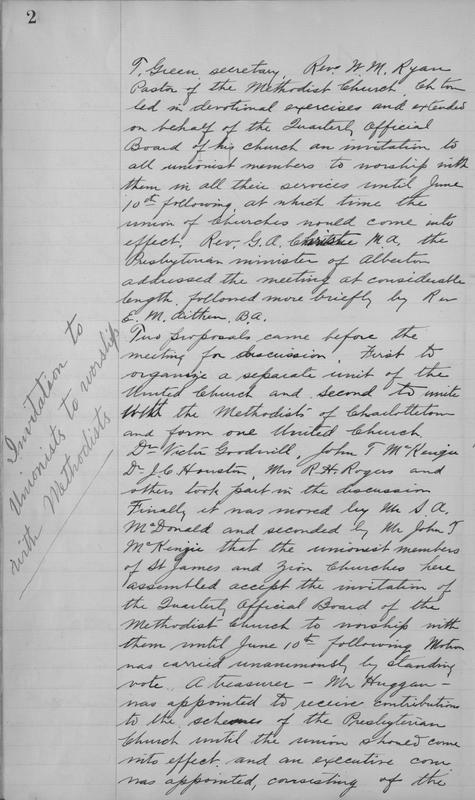 2
T. Green secretary. Rev. W. M. Ryan
Pastor of the Methodist Church, Ch town
led in devotional exercises and extended
on behalf of the Quarterly Official
Board of his church an invitation to
all unionist members to worship with
them in all their services until June
10th following, at which time the
union of Churches would come into
effect. Rev. G. A. Christie M.A. the
Presbyterian minister of Alberton
addressed the meeting at considerable
length followed more briefly by Rev
E. M. Aitken B.A.
Two proposals came before the
meeting for discussion. First to
organize a separate unit of the
United Church and second to unite
with the Methodists of Charlottetown
and form one United Church.
Dr Victor Goodwill, John T McKenzie
Dr J. C Houston, Mrs R. H. Rogers and
others took part in the discussion
Finally it was moved by Mr S. A.
McDonald and seconded by Mr John T
McKenzie that the unionist members
of St James and Zion Churches here
assembled accept the invitation of
the Quarterly Official Board of the
Methodist Church to worship with
them until June 10th following. Motion
was carried unanimously by standing
vote. A treasurer - Mr Huggan -
was appointed to receive contributions
to the schemes of the Presbyterian
Church until the union should come
into effect. and an executive com
was appointed, consisting of the
Invitation to
Unionists to worship
with Methodists